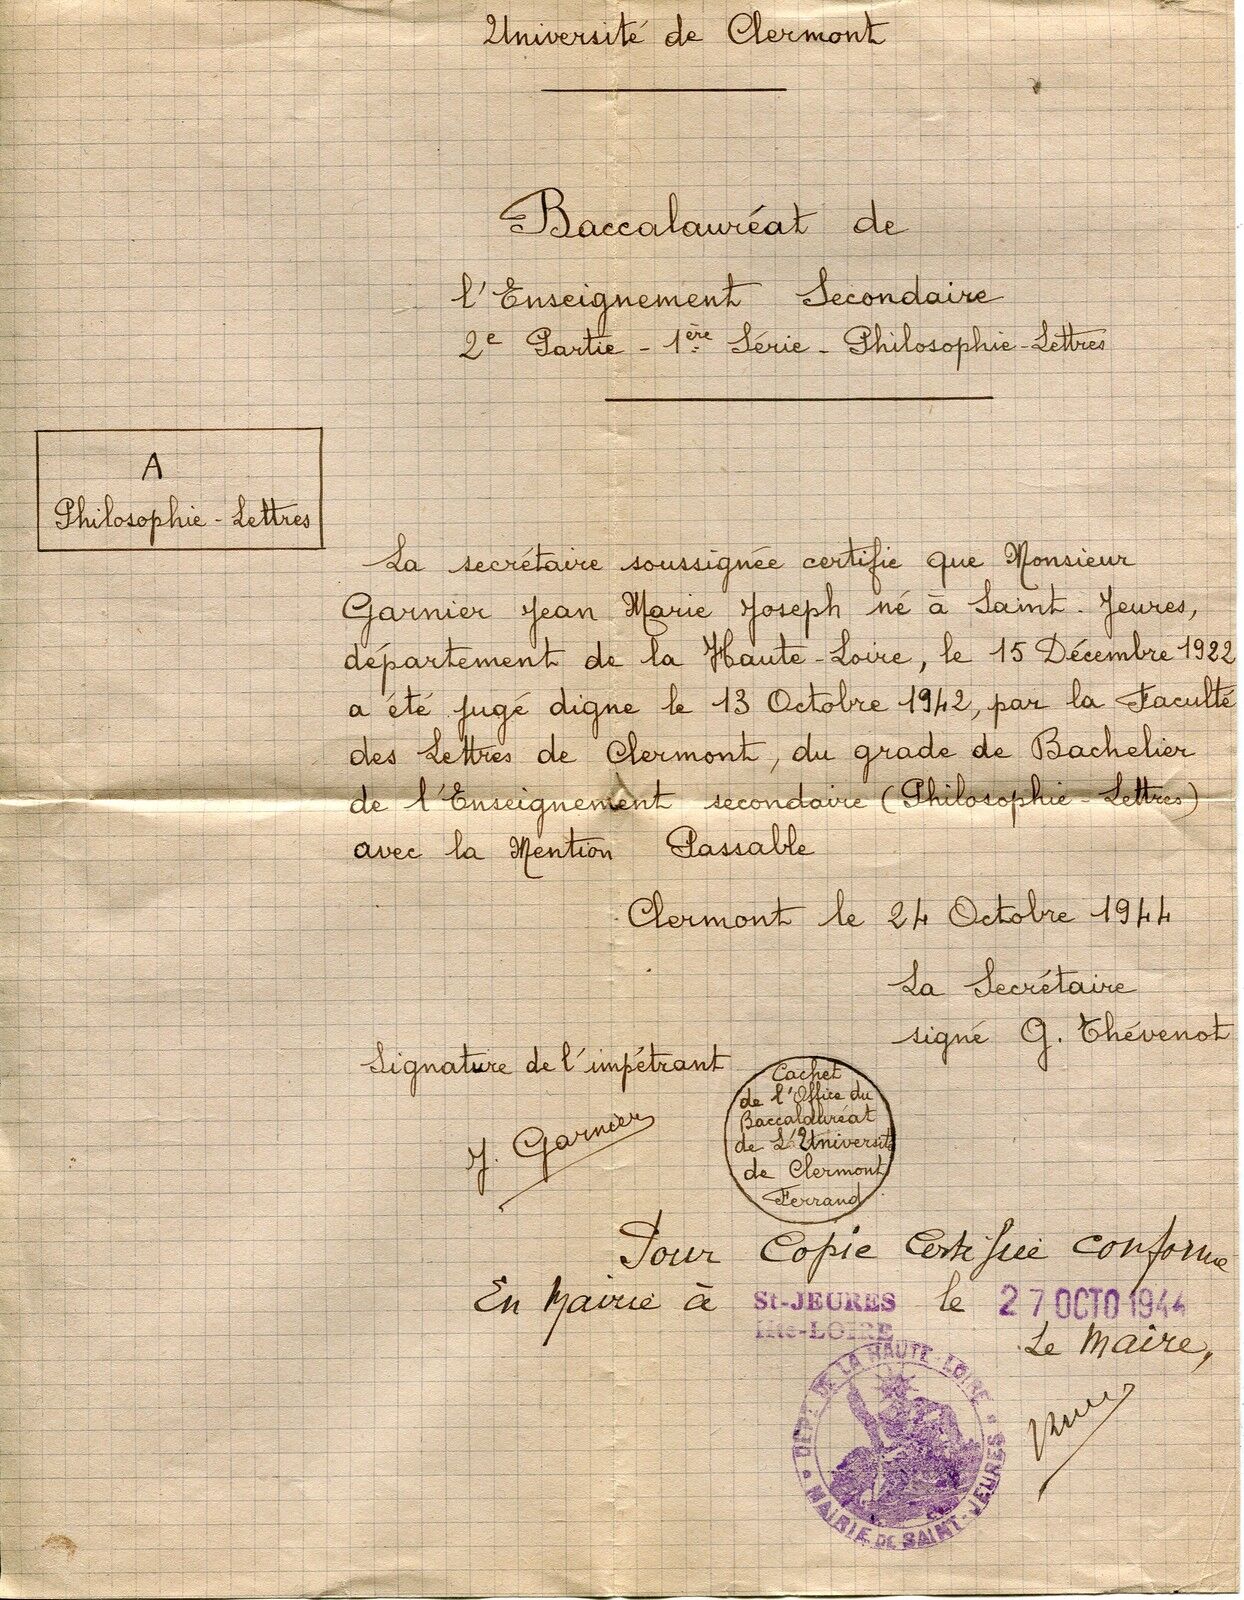 Université de Clermont
Baccalauréat de
l'Enseignement Secondaire
2e Partie - 1ère Série - Philosophie-Lettres
A
Philosophie-Lettres
La secrétaire soussignée certifie que Monsieur
Garnier Jean Marie Joseph né à Saint-Jeures,
département de la Haute-Loire, le 15 Décembre 1922
a été jugé digne le 13 Octobre 1942, par la Faculté
des Lettres de Clermont, du grade de Bachelier
de l'Enseignement secondaire (Philosophie-Lettres)
avec la Mention Passable
Clermont le 24 Octobre 1944
La Secrétaire
signé G. Thévenot
Signature de l'impétrant
J. Garnier
Cachet
de l'Office du
Baccalauréat
de L'Université
de Clermont
Ferrand
Pour Copie Certifiée conforme
En Mairie à St-JEURES le 27 OCTO 1944
Hte-LOIRE
Le Maire,
DEPT DE LA HAUTE-LOIRE
MAIRIE DE SAINT-JEURES